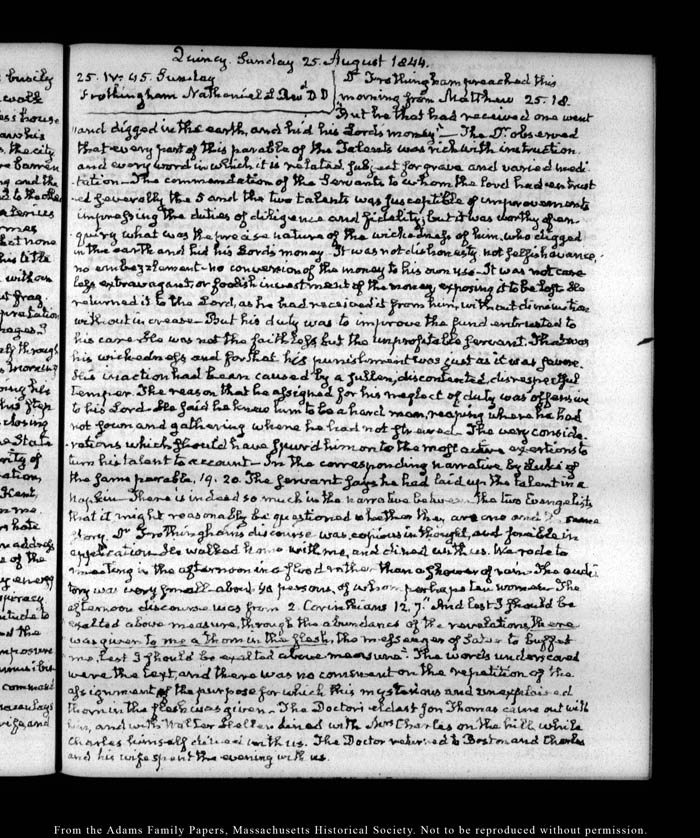 Quincy. Sunday 25. August 1844.
25. IV:45. Sunday
Frothingham Nathaniel L Revd D.D
Dr Frothingham preached this
morning from Matthew 25.18.
But he that had received one went
and digged in the earth, and hid his Lords money" — The Dr observed
that every part of this parable of the Talents was rich with instruction
and every word in which it is related, subject for grave and varied medi-
tation — The commendation of the Servants to whom the lord had entrust
ed severally the 5 and the two talents was susceptible of improvements
impressing the duties of diligence and fidelity, but it was worthy of en-
quiry what was the precise nature of the wickedness of him, who digged
in the earth and hid his Lords money. It was not dishonesty, not selfish avarice,
no embezzlement no conversion of the money to his own use — It was not care
less extravagant, or foolish investment of the money, exposing it to be lost. He
returned it to the Lord, as he had received it from him, without diminution
without increase. But his duty was to improve the fund entrusted to
his care. He was not the faithless but the unprofitable servant. That was
his wickedness and for that his punishment was just as it was severe.
His inaction had been caused by a sullen, discontented, disrespectful
temper. The reason that he assigned for his neglect of duty was offensive
to his Lord — He said he knew him to be a hard man, reaping where he had
not sown and gathering where he had not strewed — The very conside-
rations which should have spurr'd him on to the most active exertions to
turn his talent to account — In the corresponding narrative by Luke of
the same parable, 19. 20. The servant says he had laid up the talent in a
napkin — There is indeed so much in the narrative between the two Evangelists
that it might reasonably be questioned whether they are one and the same
story. Dr Frothingham's discourse was copious in thought, and forcible in
application. He walked home with me, and dined with us. We rode to
meeting in the afternoon in a flood rather than a shower of rain. The audi
tory was very small about 40 persons, of whom perhaps ten women. The
afternoon discourse was from 2. Corinthians 12. 7. "And lest I should be
exalted above measure, through the abundance of the revelations, there
was given to me a thorn in the flesh, the messenger of Satan to buffet
me, lest I should be exalted above measure". The words underscored
were the text, and there was no comment on the repetition of the
assignment of the purpose for which this mysterious and unexplained
thorn in the flesh was given — The Doctor's eldest son Thomas came out with
him, and with Walter dined with Mrs Charles on the hill while
Charles himself dined with us. The Doctor returned to Boston and Charles
and his wife spent the evening with us.
From the Adams Family Papers, Massachusetts Historical Society. Not to be reproduced without permission.